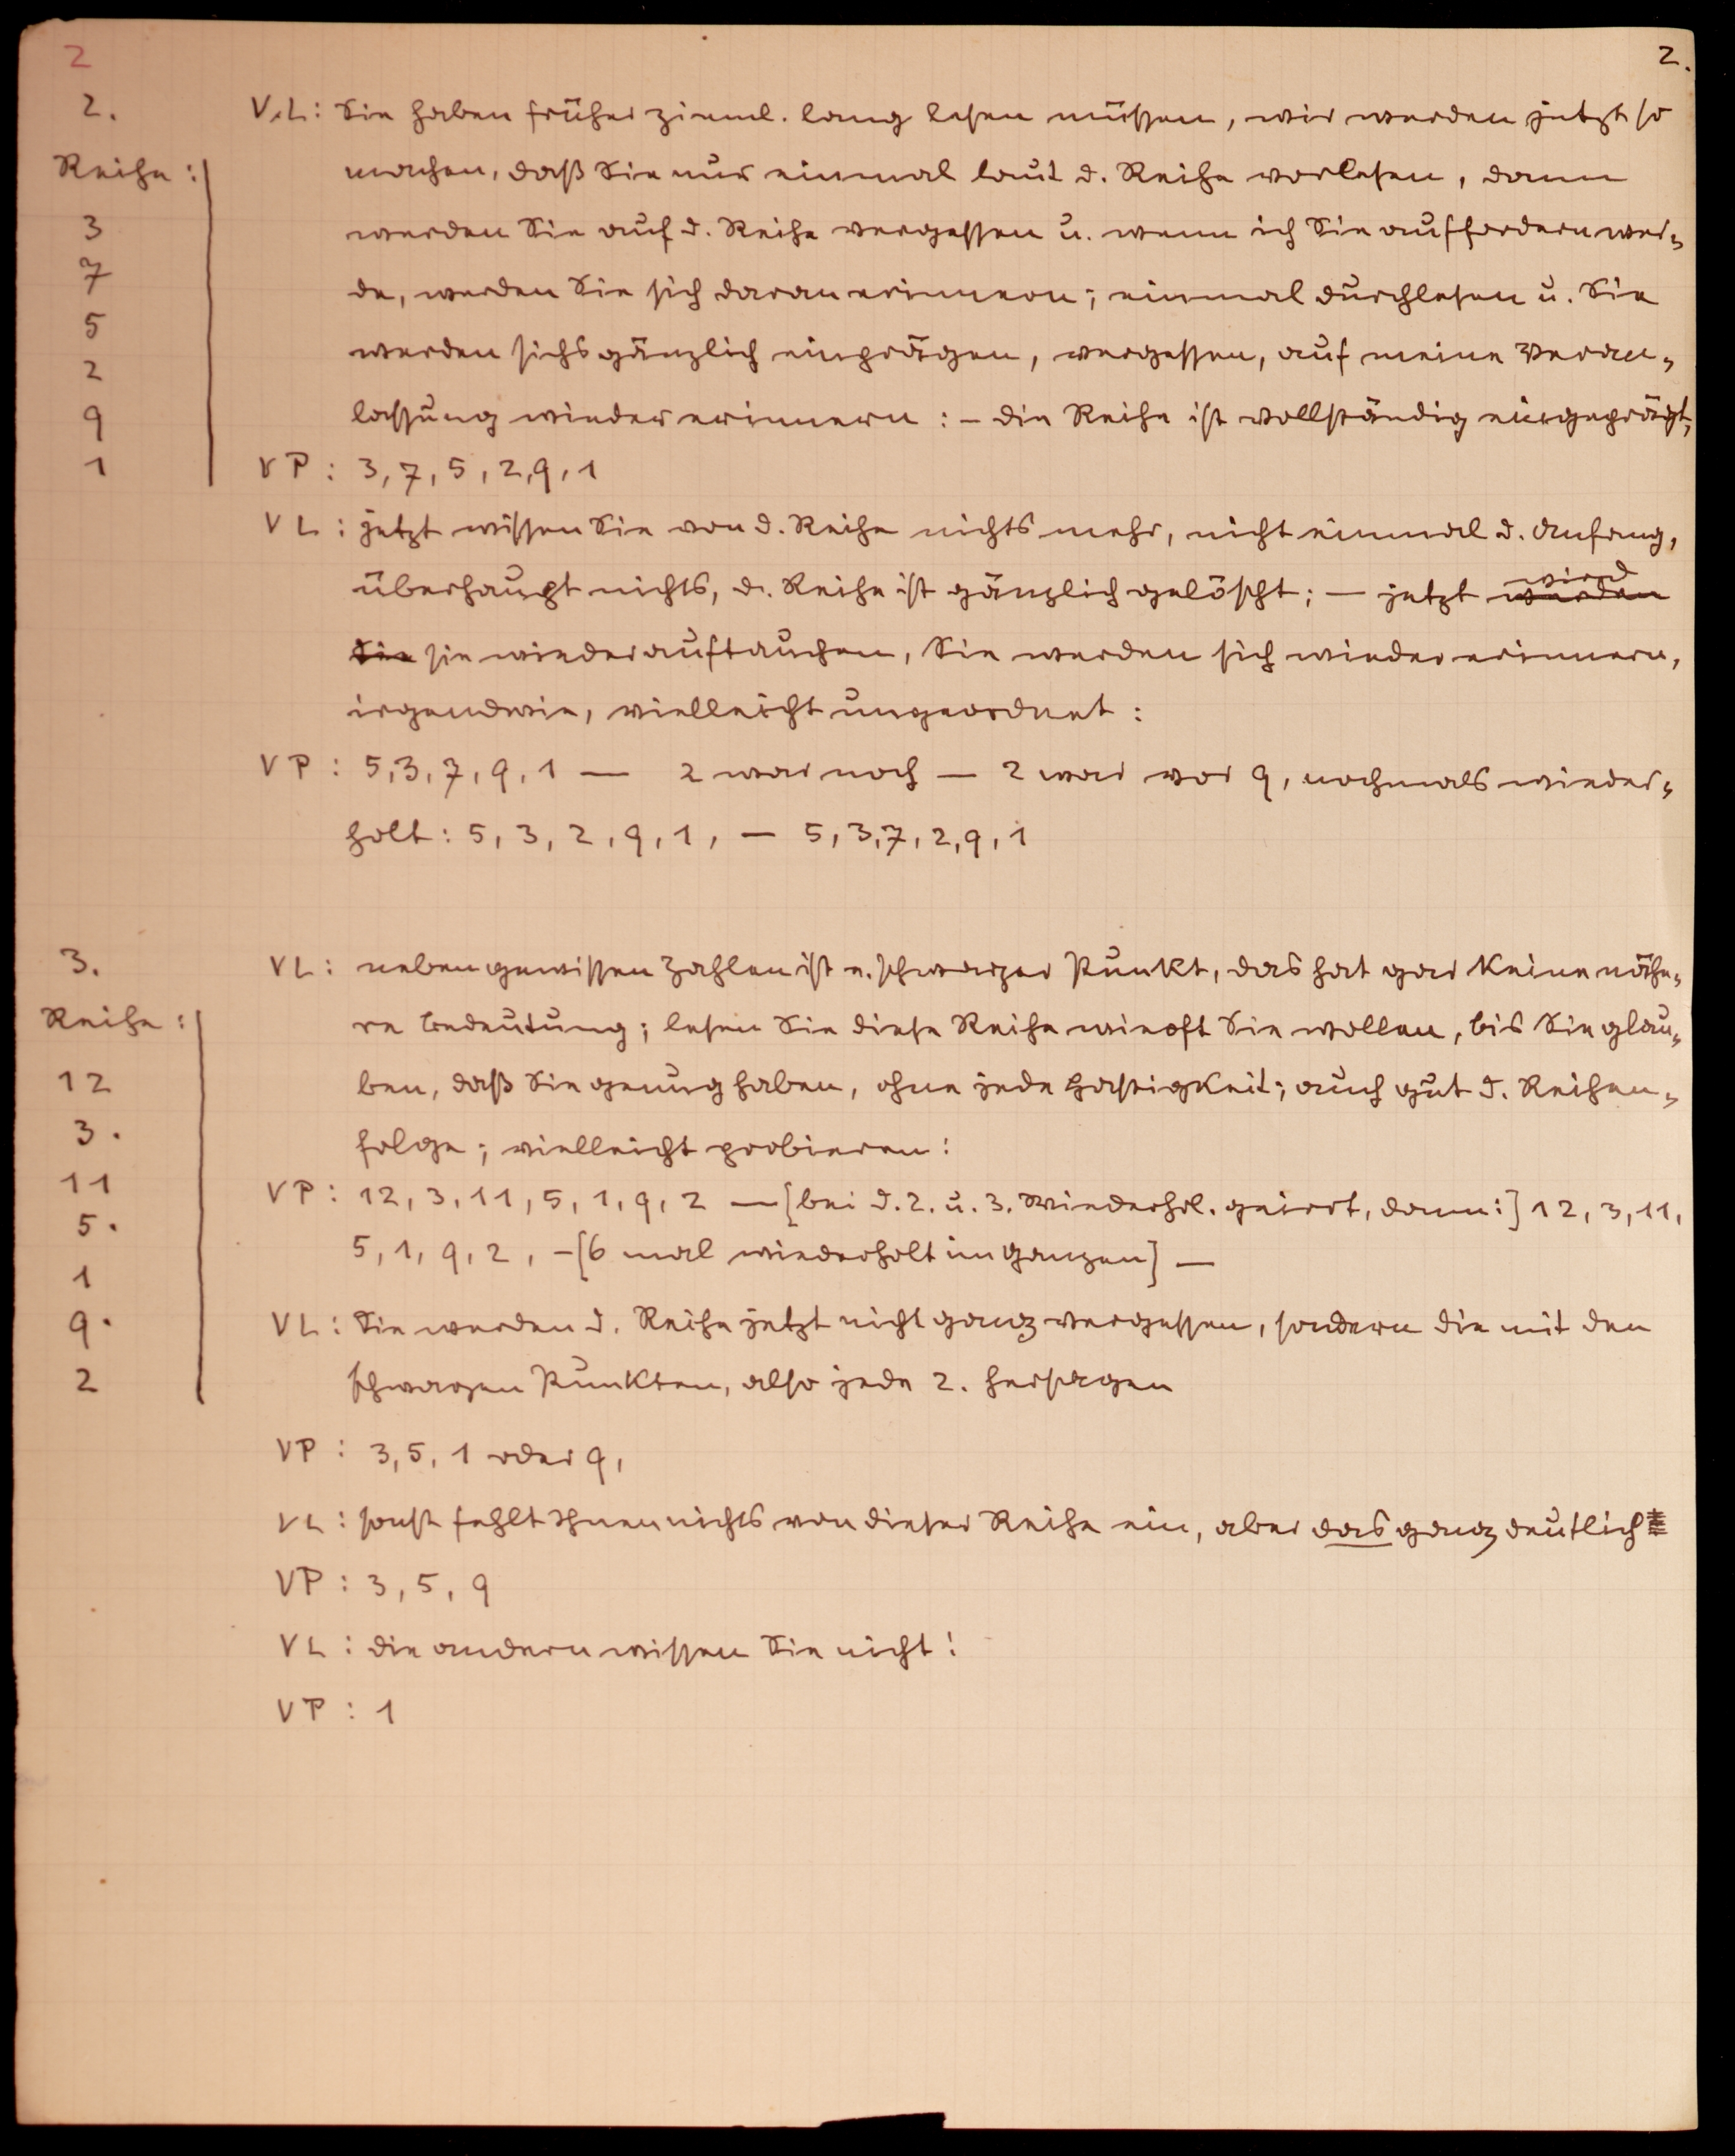 2
2.
2.
Reihe:
3
7
5
2
9
1
V.L: Sie haben früher zieml. lang lesen müssen, wir werden jetzt so
machen, daß Sie nur einmal laut d. Reihe vorlesen, dann
werden Sie auf d. Reihe vergessen u. wenn ich Sie auffordern wer-
de, werden Sie sich daran erinnern; einmal durchlesen u. Sie
werden sichs gänzlich einprägen, vergessen, auf meine Veran-
lassung wieder erinnern: – die Reihe ist vollständig eingeprägt,
VP: 3, 7, 5, 2, 9, 1
VL: jetzt wissen Sie von d. Reihe nichts mehr, nicht einmal d. Anfang,
überhaupt nichts, d. Reihe ist gänzlich gelöscht; — jetzt werden wird
Sie sie wieder auftauchen, Sie werden sich wieder erinnern,
irgendwie, vielleicht ungeordnet:
VP: 5, 3, 7, 9, 1 — 2 war noch — 2 war vor 9, nochmals wieder-
holt: 5, 3, 2, 9, 1, — 5, 3, 7, 2, 9, 1
3.
Reihe:
12
3 .
11
5 .
1
9 .
2
VL: neben gewissen Zahlen ist e. schwarzer Punkt, das hat gar keine nähe-
re Bedeutung; lesen Sie diese Reihe wie oft Sie wollen, bis Sie glau-
ben, daß Sie genug haben, ohne jede Hastigkeit; auch gut d. Reihen-
folge; vielleicht probieren!
VP: 12, 3, 11, 5, 1, 9, 2 — [bei d. 2. u. 3. Wiederhol. geirrt, dann:] 12, 3, 11,
5, 1, 9, 2, – [6 mal wiederholt im Ganzen] —
VL: Sie werden d. Reihe jetzt nicht ganz vergessen, sondern die mit den
schwarzen Punkten, also jede 2. hersagen
VP: 3, 5, 1 oder 9,
VL: sonst fehlt Ihnen nichts von dieser Reihe ein, aber das ganz deutlich
VP: 3, 5, 9
VL: die andern wissen Sie nicht!
VP: 1